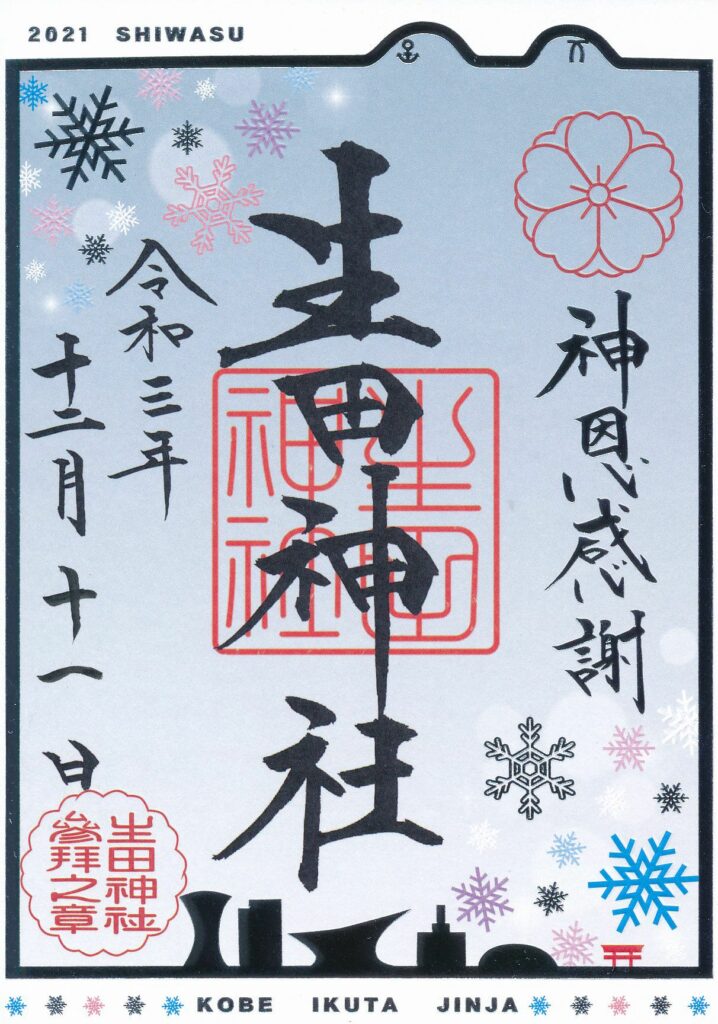 2021 SHIWASU
神恩感謝
生田神社
生田神社
令和三年
十二月十一日
生田神社
参拝之章
KOBE IKUTA JINJA